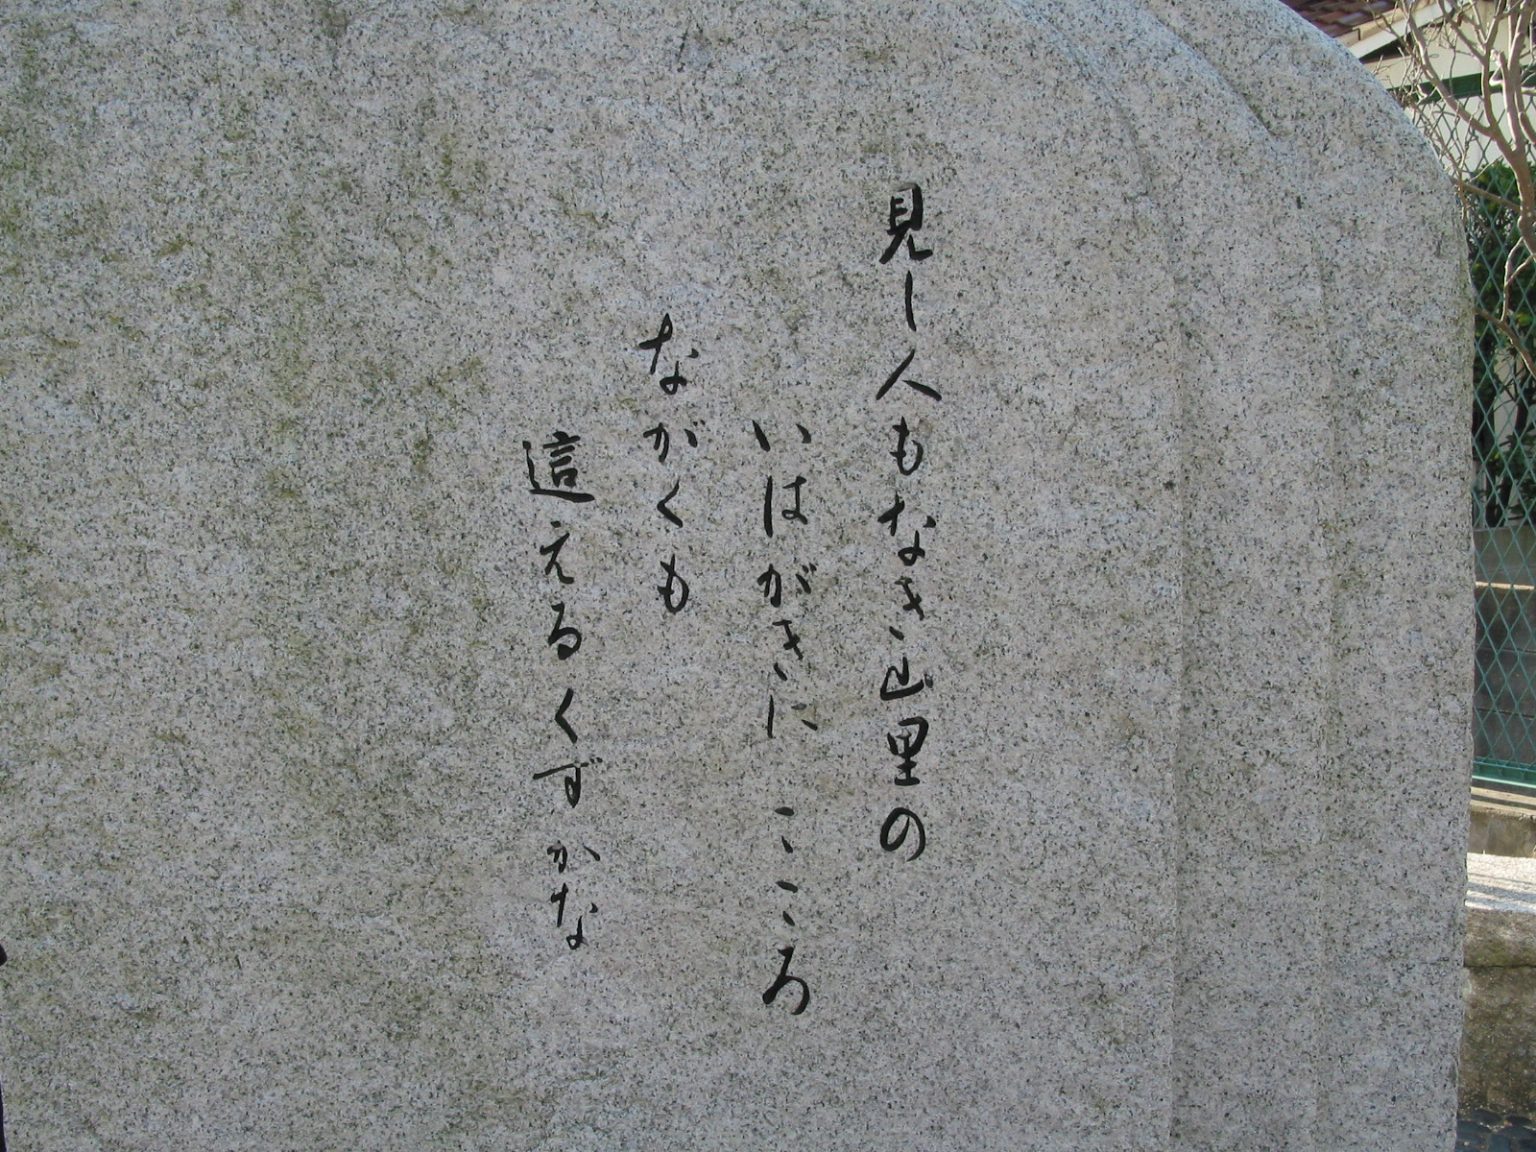 見し人もなき山里の
いはがきに こころ
ながくも
這えるくずかな